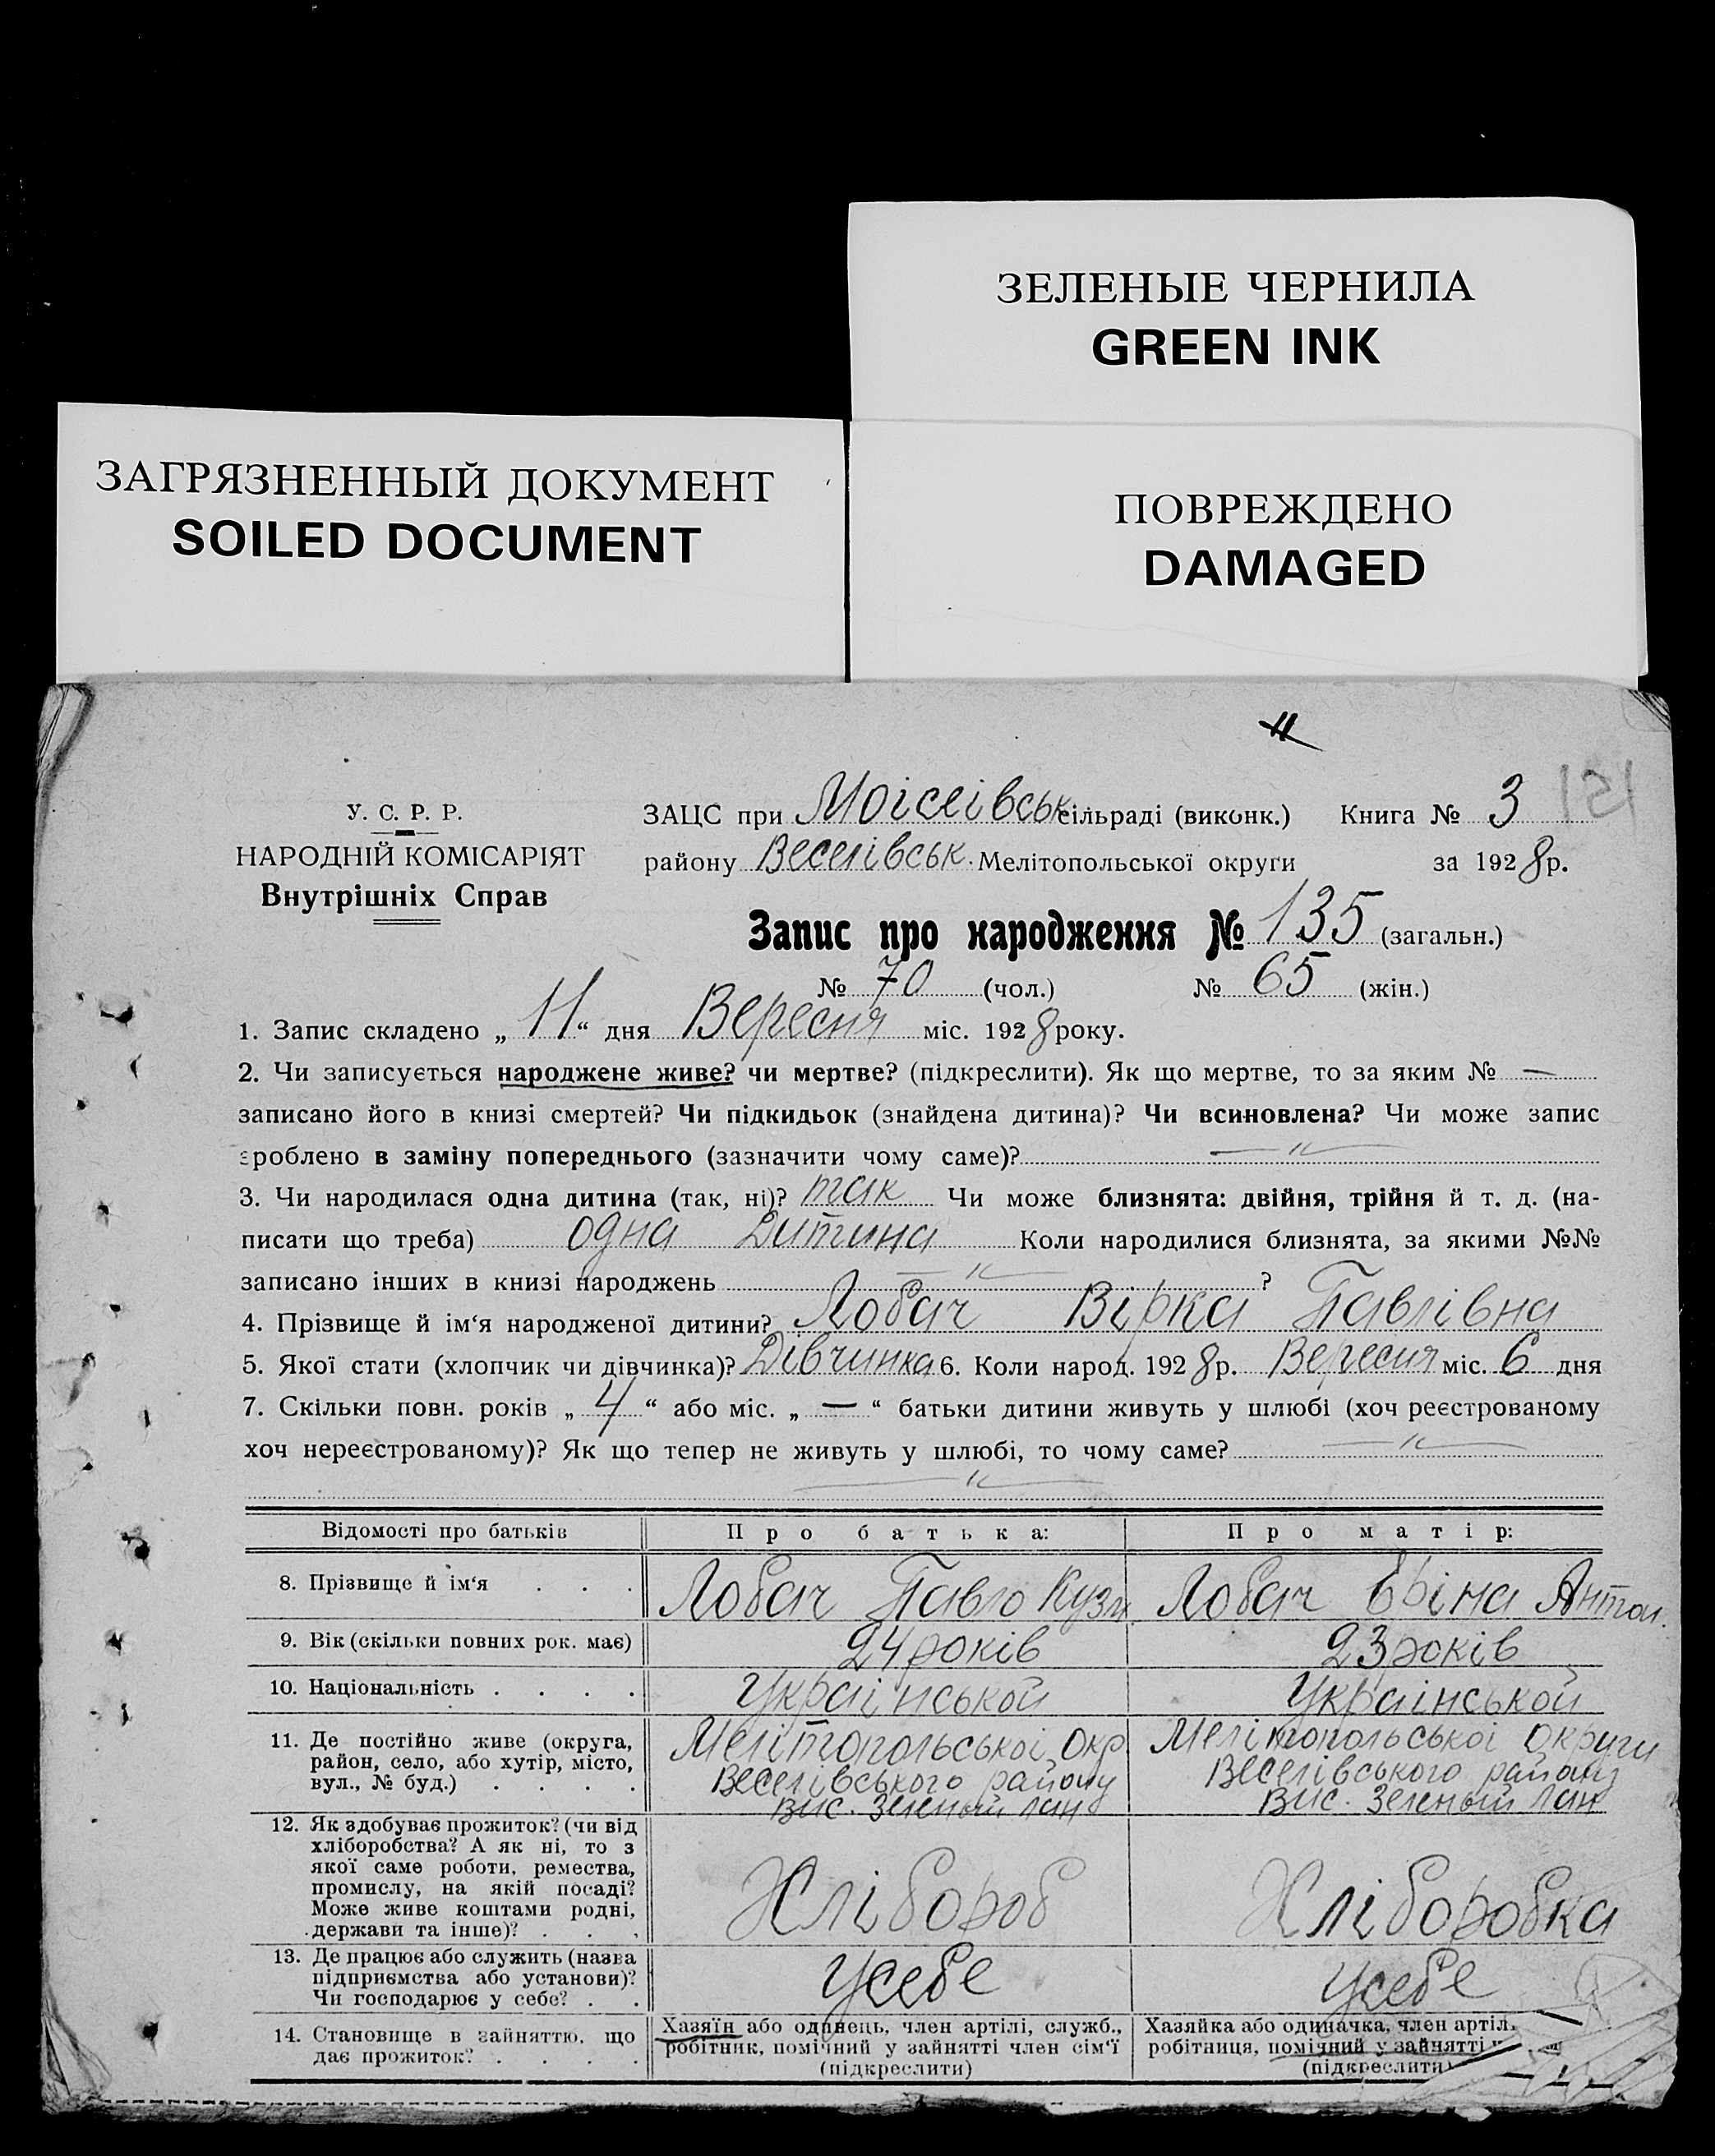 ЗЕЛЕНЫЕ ЧЕРНИЛА
GREEN INK
ЗАГРЯЗНЕННЫЙ ДОКУМЕНТ
SOILED DOCUMENT
ПОВРЕЖДЕНО
DAMAGED
У. С. Р. Р.
НАРОДНІЙ КОМІСАРІЯТ
Внутрішніх Справ
ЗАЦС при Моісеівськ сільраді (виконк.) Книга № 3 151
району Веселівськ. Мелітопольської округи за 1928 р.
Запис про народження № 135 (загальн.)
№ 70 (чол.) № 65 (жін.)
1. Запис складено „ 11 “ дня Вересня міс. 1928 року.
2. Чи записується народжене живе? чи мертве? (підкреслити). Як що мертве, то за яким № —
записано його в книзі смертей? Чи підкидьок (знайдена дитина)? Чи всиновлена? Чи може запис
зроблено в заміну попереднього (зазначити чому саме)? — „ —
3. Чи народилася одна дитина (так, ні)? так Чи може близнята: двійня, трійня й т. д. (на-
писати що треба) одна Дитина Коли народилися близнята, за якими №№
записано інших в книзі народжень — „ — ?
4. Прізвище й ім‘я народженої дитини? Лобач Вірка Павлівна
5. Якої стати (хлопчик чи дівчинка)? Дівчинка 6. Коли народ. 1928 р. Вересня міс. 6 дня
7. Скільки повн. років „ 4 “ або міс. „ — “ батьки дитини живуть у шлюбі (хоч реєстрованому
хоч нереєстрованому)? Як що тепер не живуть у шлюбі, то чому саме? — „ —
— „ —
Відомості про батьків Про батька: Про матір:
8. Прізвище й ім‘я . . . Лобач Павло Кузм Лобач Єріна Антон.
9. Вік (скільки повних рок. має) 24 років 23 років
10. Національність . . . . Украінськой Украінськой
11. Де постійно живе (округа,
район, село, або хутір, місто,
вул., № буд.) . . . .
Мелітопольськоі Окр
Веселівського району
Вис. Зеленый лан
Мелітопольськоі округи
Веселівського району
Вис. Зеленый Лан
12. Як здобуває прожиток? (чи від
хліборобства? А як ні, то з
якої саме роботи, ремества,
промислу, на якій посаді?
Може живе коштами родні,
держави та інше)? . . .
Хлібороб
Хліборобка
13. Де працює або служить (назва
підприємства або установи)?
Чи господарює у себе? . .
Усебе
Усебе
14. Становище в зайняттю, що
дає прожиток? . . . .
Хазяїн або одинець, член артілі, служб.,
робітник, помічний у зайнятті член сім‘ї
(підкреслити)
Хазяйка або одиначка, член артіл.
робітниця, помічний у зайнятті
(підкреслити)